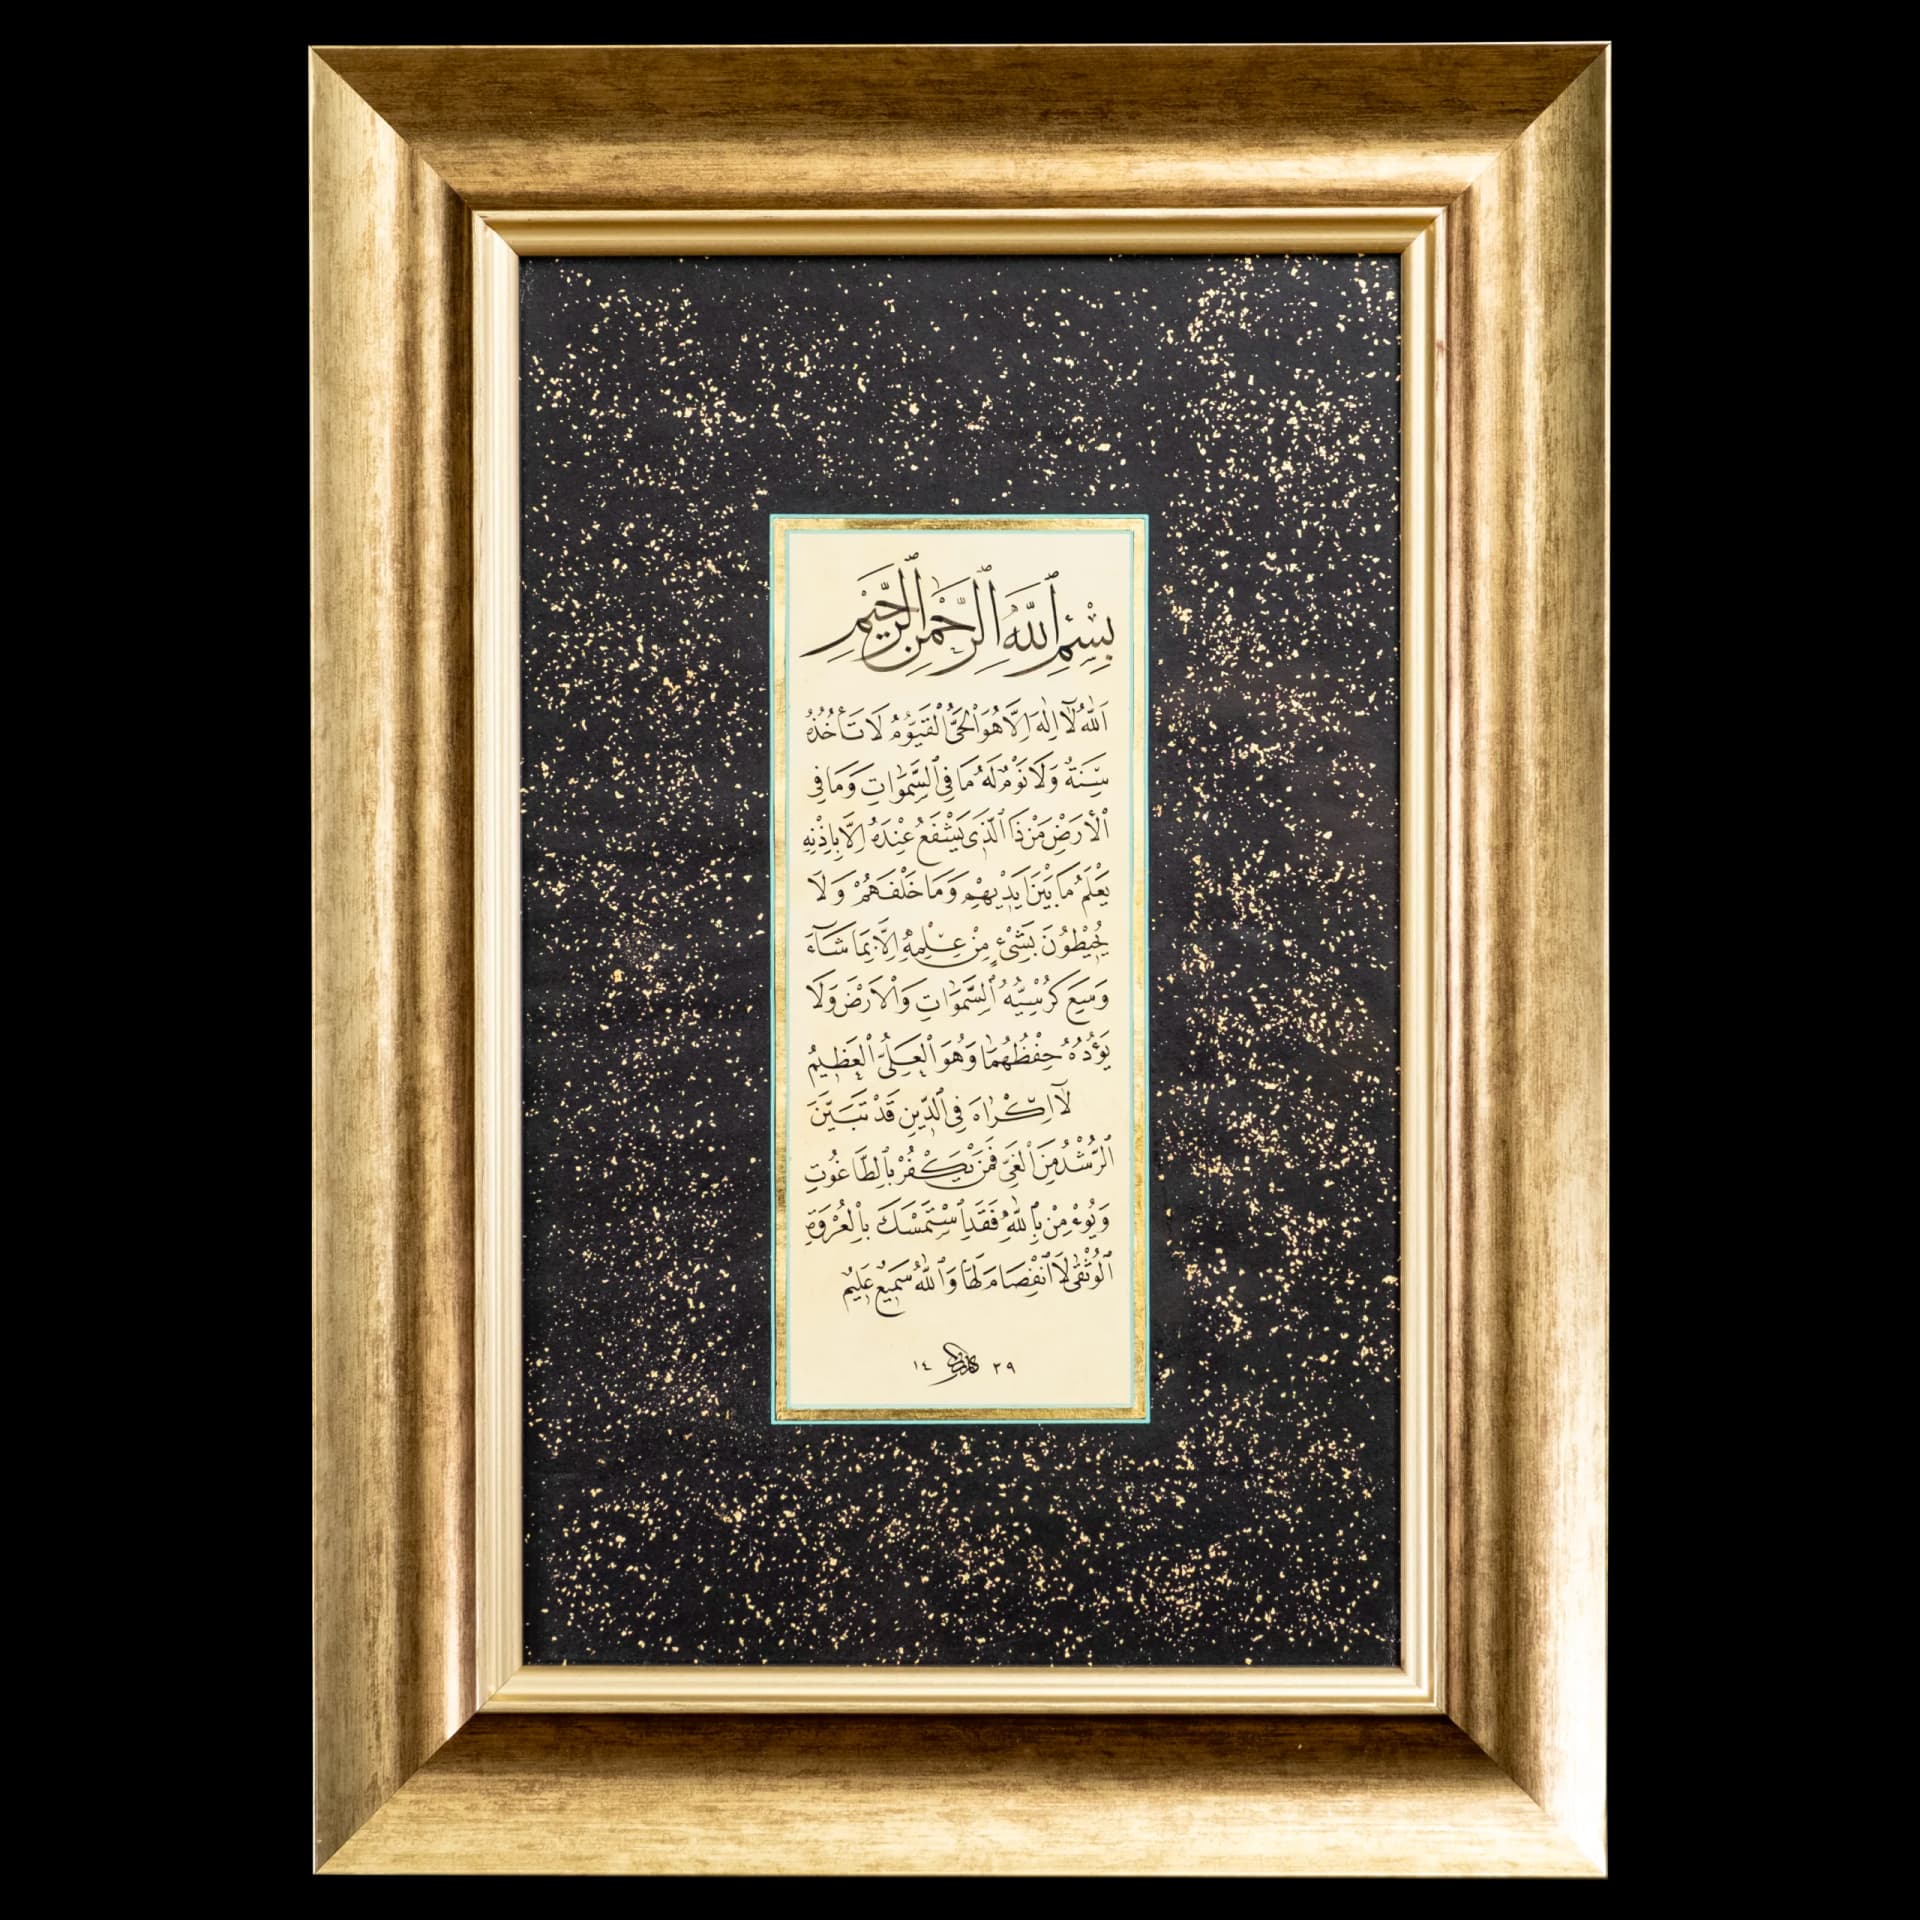 بِسْمِ اللّٰهِ الرَّحْمٰنِ الرَّحِيْمِ
اَللّٰهُ لَٓا اِلٰهَ اِلَّا هُوَ الْحَىُّ الْقَيُّومُ لَا تَأْخُذُهُ
سِنَةٌ وَلَا نَوْمٌ لَهُ مَا فِى السَّمٰوَاتِ وَمَا فِى
الْأَرْضِ مَنْ ذَا الَّذِى يَشْفَعُ عِنْدَهُ اِلَّا بِاِذْنِهِ
يَعْلَمُ مَا بَيْنَ اَيْدِيهِمْ وَمَا خَلْفَهُمْ وَلَا
يُحِيْطُوْنَ بِشَىْءٍ مِنْ عِلْمِهِ اِلَّا بِمَا شَٓاءَ
وَسِعَ كُرْسِيُّهُ السَّمٰوَاتِ وَالْاَرْضَ وَلَا
يَؤُدُهُ حِفْظُهُمَا وَهُوَ الْعَلِىُّ الْعَظِيْمُ
لَٓا اِكْرَاهَ فِى الدِّينِ قَدْ تَبَيَّنَ
الرُّشْدُ مِنَ الْغَىِّ فَمَنْ يَكْفُرْ بِالطَّاغُوتِ
وَيُؤْمِنْ بِاللّٰهِ فَقَدِ اسْتَمْسَكَ بِالْعُرْوَةِ
الْوُثْقٰى لَا انْفِصَامَ لَهَا وَاللّٰهُ سَمِيْعٌ عَلِيْمٌ
١٤ ٢٩